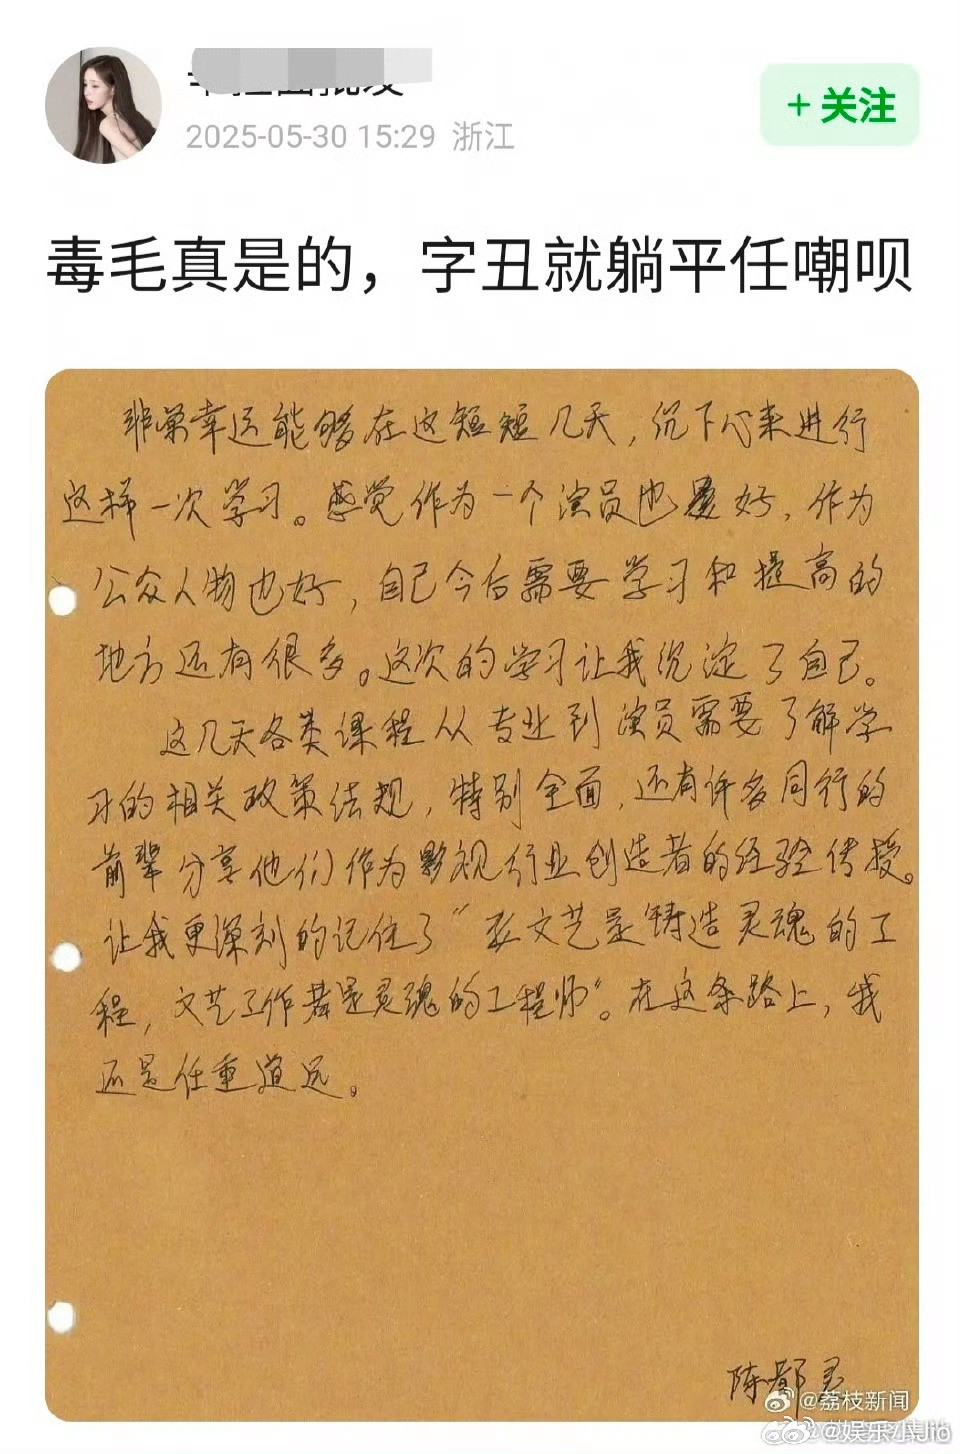 2025-05-30 15:29 浙江
+ 关注
毒毛真是的，字丑就躺平任嘲呗
非常幸运能够在这短短几天，沉下心来进行
这样一次学习。感觉作为一个演员也是好，作为
公众人物也好，自己今后需要学习和提高的
地方还有很多。这次的学习让我沉淀了自己。
这几天各类课程从专业到演员需要了解学
习的相关政策法规，特别全面，还有许多同行的
前辈分享他们作为影视行业创造者的经验传授。
让我更深刻的记住了“文艺是铸造灵魂的工
程，文艺工作者是灵魂的工程师”。在这条路上，我
还是任重道远。
陈都灵
@荔枝新闻
@娱乐小Jio